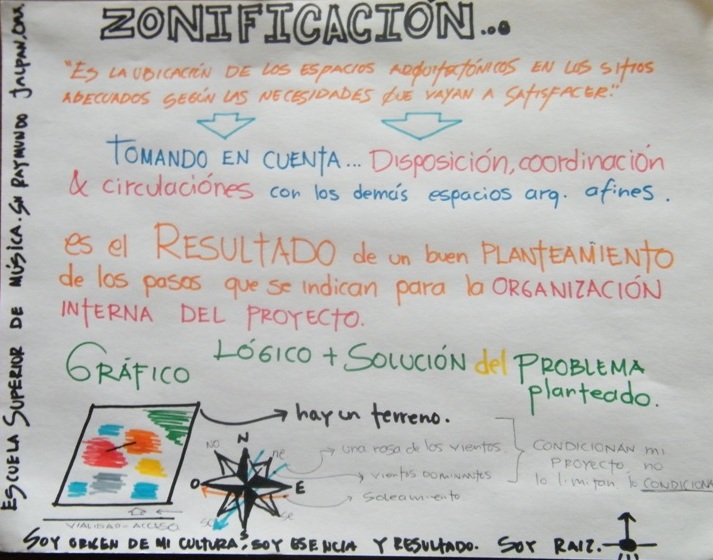 ZONIFICACIÓN...
"ES LA UBICACIÓN DE LOS ESPACIOS ARQUITECTÓNICOS EN LOS SITIOS
ADECUADOS SEGÚN LAS NECESIDADES QUE VAYAN A SATISFACER."
TOMANDO EN CUENTA... DISPOSICIÓN, COORDINACIÓN
& circulaciónes con los demás espacios arq. afines.
es el RESULTADO de un buen PLANTEAMIENTO
de los pasos que se indican para la ORGANIZACIÓN
INTERNA DEL PROYECTO.
GRÁFICO LÓGICO + SOLUCIÓN del PROBLEMA
planteado.
hay un terreno.
N
NO
ne
una rosa de los vientos
vientos DOMINANTES
O
E
Soleamiento
SO
se
CONDICIONAN mi
PROYECTO, no
lo limitan lo CONDICIONA
VIALIDAD - ACCESO
SOY ORIGEN DE MI CULTURA, SOY ESENCIA Y RESULTADO. SOY RAIZ.
ESCUELA SUPERIOR DE MÚSICA. SN RAYMUNDO JALPAN, OAX